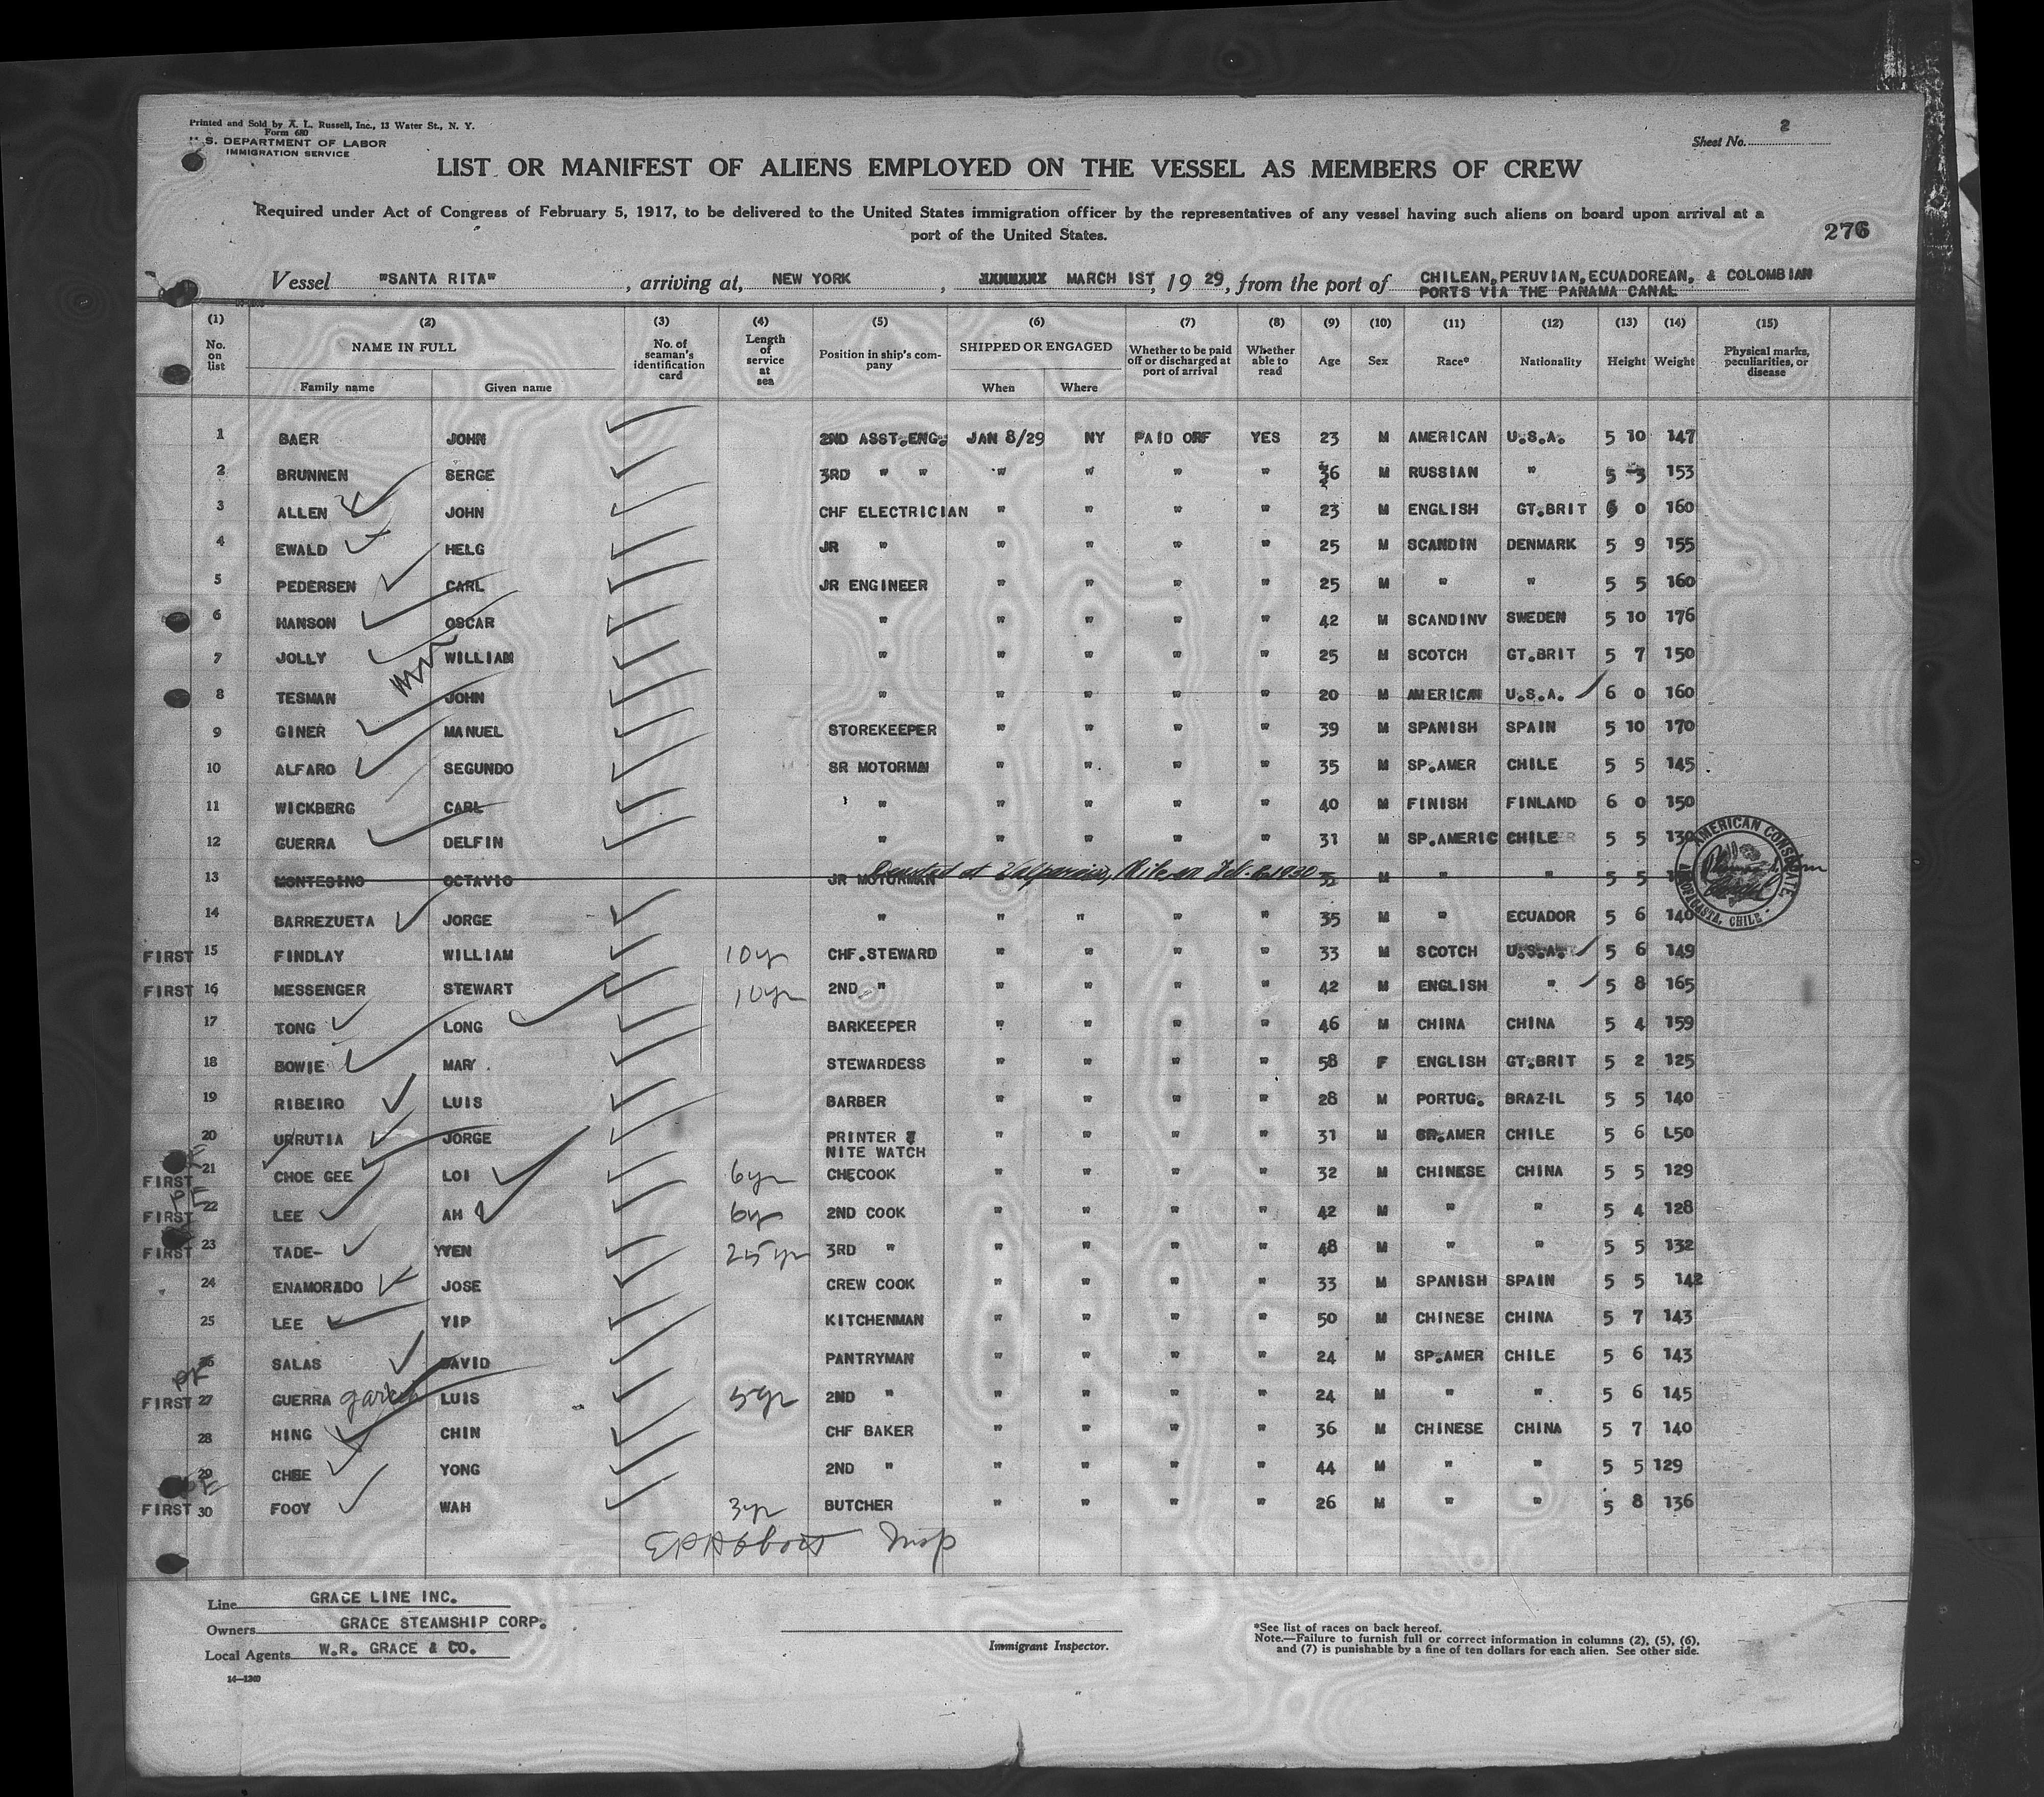 Printed and Sold by A. L. Russell, Inc., 13 Water St., N. Y.
Form 680
U. S. DEPARTMENT OF LABOR
IMMIGRATION SERVICE
Sheet No. 2
LIST OR MANIFEST OF ALIENS EMPLOYED ON THE VESSEL AS MEMBERS OF CREW
Required under Act of Congress of February 5, 1917, to be delivered to the United States immigration officer by the representatives of any vessel having such aliens on board upon arrival at a
port of the United States.
276
Vessel "SANTA RITA", arriving at, NEW YORK, MARCH 1ST, 19 29, from the port of CHILEAN, PERUVIAN, ECUADOREAN, & COLOMBIAN
PORTS VIA THE PANAMA CANAL
(1) (2) (3) (4) (5) (6) (7) (8) (9) (10) (11) (12) (13) (14) (15)
No. on list NAME IN FULL Family name Given name No. of seaman's identification card Length of service at sea Position in ship's company SHIPPED OR ENGAGED When Where Whether to be paid off or discharged at port of arrival Whether able to read Age Sex Race* Nationality Height Weight Physical marks, peculiarities, or disease
1 BAER JOHN 2ND ASST.ENG. JAN 8/29 NY PAID OFF YES 23 M AMERICAN U.S.A. 5 10 147
2 BRUNNEN SERGE 3RD " " " " " " 36 M RUSSIAN " 5 3 153
3 ALLEN JOHN CHF ELECTRICIAN " " " " 23 M ENGLISH GT.BRIT 6 0 160
4 EWALD HELG JR " " " " " 25 M SCANDIN DENMARK 5 9 155
5 PEDERSEN CARL JR ENGINEER " " " " 25 M " " 5 5 160
6 HANSON OSCAR " " " " " 42 M SCANDINV SWEDEN 5 10 176
7 JOLLY WILLIAM " " " " " 25 M SCOTCH GT.BRIT 5 7 150
8 TESMAN JOHN " " " " " 20 M AMERICAN U.S.A. 6 0 160
9 GINER MANUEL STOREKEEPER " " " " 39 M SPANISH SPAIN 5 10 170
10 ALFARO SEGUNDO SR MOTORMN " " " " 35 M SP.AMER CHILE 5 5 145
11 WICKBERG CARL " " " " " 40 M FINISH FINLAND 6 0 150
12 GUERRA DELFIN " " " " " 31 M SP.AMERIC CHILE 5 5 130
13 MONTESINO OCTAVIO JR MOTORMAN Deserted at Valparaiso, Chile on Feb. 6 1930 M " " 5 5
14 BARREZUETA JORGE " " " " " 35 M " ECUADOR 5 6 140
AMERICAN CONSULATE. ANTOFAGASTA, CHILE
FIRST 15 FINDLAY WILLIAM 10yr CHF.STEWARD " " " " 33 M SCOTCH U.S.A. 5 6 149
FIRST 16 MESSENGER STEWART 10yr 2ND " " " " " 42 M ENGLISH " 5 8 165
17 TONG LONG BARKEEPER " " " " 46 M CHINA CHINA 5 4 159
18 BOWIE MARY STEWARDESS " " " " 58 F ENGLISH GT.BRIT 5 2 125
19 RIBEIRO LUIS BARBER " " " " 28 M PORTUG. BRAZIL 5 5 140
20 URRUTIA JORGE PRINTER & NITE WATCH " " " " 31 M SP.AMER CHILE 5 6 L50
FIRST 21 CHOE GEE LOI 6yr CHFCOOK " " " " 32 M CHINESE CHINA 5 5 129
PE
FIRST 22 LEE AH 6yr 2ND COOK " " " " 42 M " " 5 4 128
FIRST 23 TADE- YVEN 25 yr 3RD " " " " " 48 M " " 5 5 132
24 ENAMORADO JOSE CREW COOK " " " " 33 M SPANISH SPAIN 5 5 142
25 LEE YIP KITCHENMAN " " " " 50 M CHINESE CHINA 5 7 143
26 SALAS DAVID PANTRYMAN " " " " 24 M SP.AMER CHILE 5 6 143
PE
FIRST 27 GUERRA garcia LUIS 5yr 2ND " " " " " 24 M " " 5 6 145
28 HING CHIN CHF BAKER " " " " 36 M CHINESE CHINA 5 7 140
29 CHEE YONG 2ND " " " " " 44 M " " 5 5 129
PE
FIRST 30 FOOY WAH 3yr BUTCHER " " " " 26 M " " 5 8 136
Insp
Line GRACE LINE INC.
Owners GRACE STEAMSHIP CORP.
Local Agents W.R. GRACE & CO.
14—1240
Immigrant Inspector.
*See list of races on back hereof.
Note.—Failure to furnish full or correct information in columns (2), (5), (6),
and (7) is punishable by a fine of ten dollars for each alien. See other side.